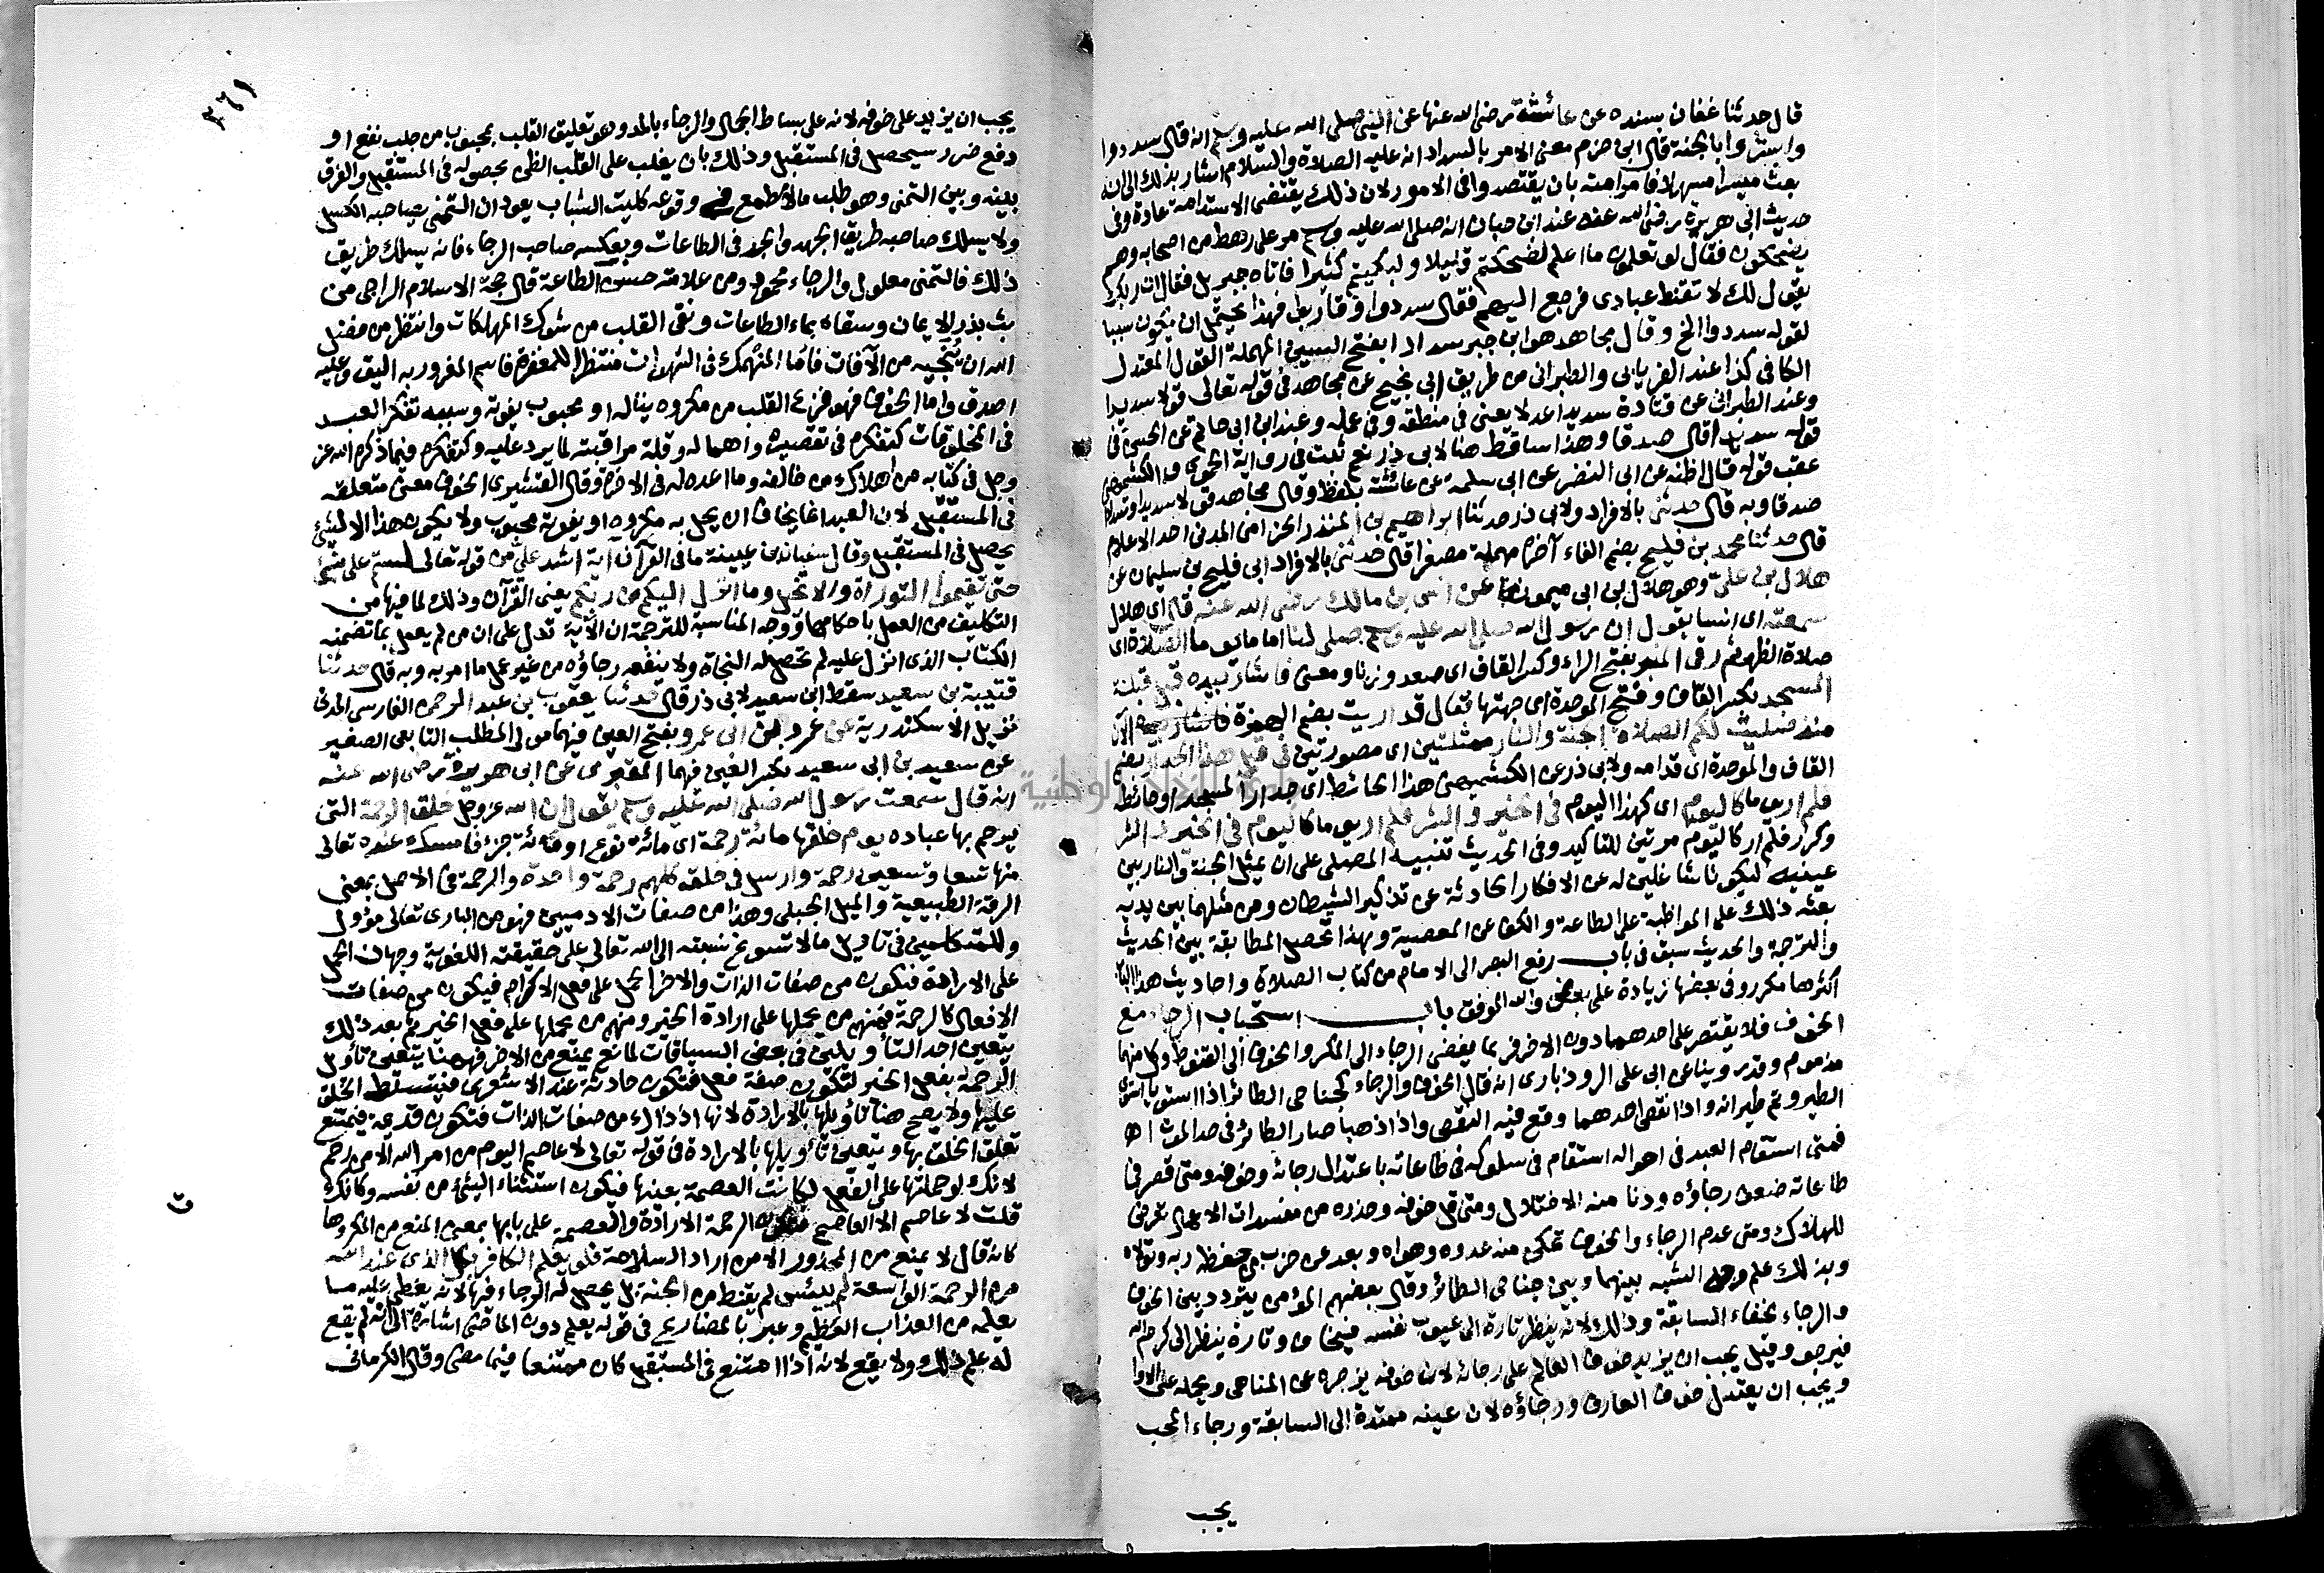 قال حدثنا عفان بسنده عن عائشة رضي الله عنها عن النبي صلى الله عليه وسلم انه قال سددوا
وابشروا بالجنة قال ابن حزم معنى الامر بالسداد انه عليه الصلاة والسلام اشار بذلك الى انه
بعث ميسرا مسهلا فامر امته بان يقتصدوا في الامور لان ذلك يقتضي الاستدامة عادة وفي
حديث ابي هريرة رضي الله عنه عند ابن حبان انه صلى الله عليه وسلم مر على رهط من اصحابه وهم
يضحكون فقال لو تعلمون ما اعلم لضحكتم قليلا ولبكيتم كثيرا فاتاه جبريل فقال ان ربك
يقول لك لا تقنط عبادي فرجع اليهم فقال سددوا وقاربوا فهذا يحتمل ان يكون سببا
لقوله سددوا الخ وقال مجاهد هو ابن جبر سدادا بفتح السين المهملة القول المعتدل
الكافي كذا عند الفريابي والطبراني من طريق ابن ابي نجيح عن مجاهد في قوله تعالى قولا سديدا
وعند الطبراني عن قتادة سديدا عدلا يعني في منطقه وفي عمله وعند ابن ابي حاتم عن الحسن في
قوله سديدا قال صدقا وهذا ساقط هنا لابي ذر نعم ثبت في رواية الحموي والكشميهني
عقب قوله قال اظنه عن ابي النضر عن ابي سلمة عن عائشة بلفظ وقال مجاهد قولا سديدا وسدادا
صدقا وبه قال حدثني بالافراد ولابي ذر حدثنا ابراهيم بن المنذر الحزامي المدني احد الاعلام
قال حدثنا محمد بن فليح بضم الفاء آخره مهملة مصغرا قال حدثني بالافراد ابي فليح بن سليمان عن
هلال بن علي وهو هلال بن ابي ميمونة عن انس بن مالك رضي الله عنه قال اي هلال
سمعته اي انسا يقول ان رسول الله صلى الله عليه وسلم صلى لنا اماما يوما الصلاة اي
صلاة الظهر ثم رقى المنبر بفتح الراء وكسر القاف اي صعد وزنا ومعنى فاشار بيده قبل قبلة
المسجد بكسر القاف وفتح الموحدة اي جهتها فقال قد اريت بضم الهمزة الآن
منذ صليت لكم الصلاة الجنة والنار ممثلتين اي مصورتين في قبل هذا الجدار بضم
القاف والموحدة اي قدامه ولابي ذر عن الكشميهني هذا الحائط اي جدار المسجد او حائطه
فلم ار يوما كاليوم اي كهذا اليوم في الخير والشر فلم ار يوما كاليوم في الخير والشر
وكرر فلم ار كاليوم مرتين للتاكيد وفي الحديث تنبيه المصلي على ان يمثل الجنة والنار بين
عينيه ليكونا شاغلين له عن الافكار الحادثة عن تذكير الشيطان ومن مثلهما بين يديه
بعثه ذلك على المواظبة على الطاعة والكف عن المعصية وبهذا تحصل المطابقة بين الحديث
والترجمة والحديث سبق في باب رفع البصر الى الامام من كتاب الصلاة واحاديث هذا الباب
اكثرها مكرر وفي بعضها زيادة على بعض والله الموفق باب استحباب الرجاء مع
الخوف فلا يقتصر على احدهما دون الاخر فربما يفضي الرجاء الى المكر والخوف الى القنوط وكل منهما
مذموم وقد روينا عن ابي علي الروذباري انه قال الخوف والرجاء كجناحي الطائر اذا استويا استوى
الطير وتم طيرانه واذا نقص احدهما وقع فيه النقص واذا ذهبا صار الطائر في حد الموت اه
فمتى استقام العبد في احواله استقام في سلوكه في طاعاته باعتدال رجائه وخوفه ومتى قصر في
طاعاته ضعف رجاؤه ودنا منه الاختلال ومتى قل خوفه وحذره من مفسدات الاعمال تعرض
للهلاك ومتى عدم الرجاء والخوف تمكن منه عدوه وهواه وبعد عن حزب من حفظه ربه وتولاه
وبذلك علم وجه الشبه بينهما وبين جناحي الطائر وقال بعضهم المؤمن يتردد بين الخوف
والرجاء لخفاء السابقة وذلك لانه ينظر تارة الى عيوب نفسه فيخاف وتارة ينظر الى كرم الله
فيرجو وقيل يجب ان يزيد خوف العالم على رجائه لان خوفه يزجره عن المناهي ويحمله على الاوامر
ويجب ان يعتدل خوف العارف ورجاؤه لان عينه ممتدة الى السابقة ورجاء المحب
يجب
٣٦١
يجب ان يزيد على خوفه لانه على بساط الجمال والرجاء بالمد وهو تعليق القلب بمحبوب من جلب نفع او
دفع ضرر سيحصل في المستقبل وذلك بان يغلب على القلب الظن بحصوله في المستقبل والفرق
بينه وبين التمني وهو طلب ما لا طمع في وقوعه كليت الشباب يعود ان التمني يصاحبه الكسل
ولا يسلك صاحبه طريق الجهد والجد في الطاعات وبعكسه صاحب الرجاء فانه يسلك طريق
ذلك فالتمني معلول والرجاء محمود ومن علامته حسن الطاعة قال حجة الاسلام الراجي من
بث بذر الايمان وسقاه بماء الطاعات ونقى القلب من شوك المهلكات وانتظر من فضل
الله ان ينجيه من الآفات فاما المنهمك في الشهوات منتظرا للمغفرة فاسم المغرور به اليق وعليه
اصدق واما الخوف فهو فزع القلب من مكروه يناله او محبوب يفوته وسببه تفكر العبد
في المخلوقات كتفكره في تقصيره واهماله وقلة مراقبته لما يرد عليه وكتفكره فيما ذكره الله عز
وجل في كتابه من اهلاك من خالفه وما اعده له في الاخرة وقال القشيري الخوف معنى متعلقه
في المستقبل لان العبد انما يخاف ان يحل به مكروه او يفوته محبوب ولا يكون هذا الا لشيء
يحصل في المستقبل وقال سفيان بن عيينة ما في القرآن آية اشد علي من قوله تعالى لستم على شيء
حتى تقيموا التوراة والانجيل وما انزل اليكم من ربكم يعني القرآن وذلك لما فيها من
التكليف من العمل باحكامها ووجه المناسبة للترجمة ان الآية تدل على ان من لم يعمل بما تضمنه
الكتاب الذي انزل عليه لم تحصل له النجاة ولا ينفعه رجاؤه من غير عمل ما امر به وبه قال حدثنا
قتيبة بن سعيد سقط ابن سعيد لابي ذر قال حدثنا يعقوب بن عبد الرحمن الفارسي المدني
نزيل الاسكندرية عن عمرو بن ابي عمرو بفتح العين فيهما مولى المطلب التابعي الصغير
عن سعيد بن ابي سعيد بكسر العين فيهما المقبري عن ابي هريرة رضي الله عنه
انه قال سمعت رسول الله صلى الله عليه وسلم يقول ان الله عز وجل خلق الرحمة التي
يرحم بها عباده يوم خلقها مائة رحمة اي مائة نوع او مائة جزء فامسك عنده تعالى
منها تسعا وتسعين رحمة وارسل في خلقه كلهم رحمة واحدة والرحمة في الاصل بمعنى
الرقة الطبيعية والميل الجبلي وهذا من صفات الادميين فهو من الباري تعالى مؤول
وللمتكلمين في تاويل ما لا تسوغ نسبته الى الله تعالى على حقيقته اللغوية وجهان الحمل
على الارادة فيكون من صفات الذات والاخر الحمل على فعل الاكرام فيكون من صفات
الافعال كالرحمة فمنهم من يحملها على ارادة الخير ومنهم من يحملها على فعل الخير ثم بعد ذلك
يتعين احد التأويلين في بعض السياقات لمانع يمنع من الاخر فههنا يتعين تأويل
الرحمة بفعل الخير لتكون صفة فعل فتكون حادثة عند الاشعري فيتسلط الخلق
عليها ولا يصح هنا تأويلها بالارادة لانها اذ ذاك من صفات الذات فتكون قديمة فيمتنع
تعلق الخلق بها ويتعين تأويلها بالارادة في قوله تعالى لا عاصم اليوم من امر الله الا من رحم
لانك لو حملتها على الفعل لكانت العصمة بعينها فيكون استثناء الشيء من نفسه وكانك
قلت لا عاصم الا العاصم فتكون الرحمة الارادة والعصمة على بابها بمعنى المنع من المكروهات
كانه قال لا يمنع من المحذور الا من اراد السلامة فلو يعلم الكافر بكل الذي عند الله
من الرحمة الواسعة لم ييئس لم يقنط من الجنة بل يحصل له الرجاء فيها لانه يغطي عليه ما
يعلمه من العذاب العظيم وعبر بالمضارع في قوله يعلم دون الماضي اشارة الى انه لم يقع
له علم ذلك ولا يقع لانه اذا امتنع في المستقبل كان ممتنعا فيما مضى وقال الكرماني